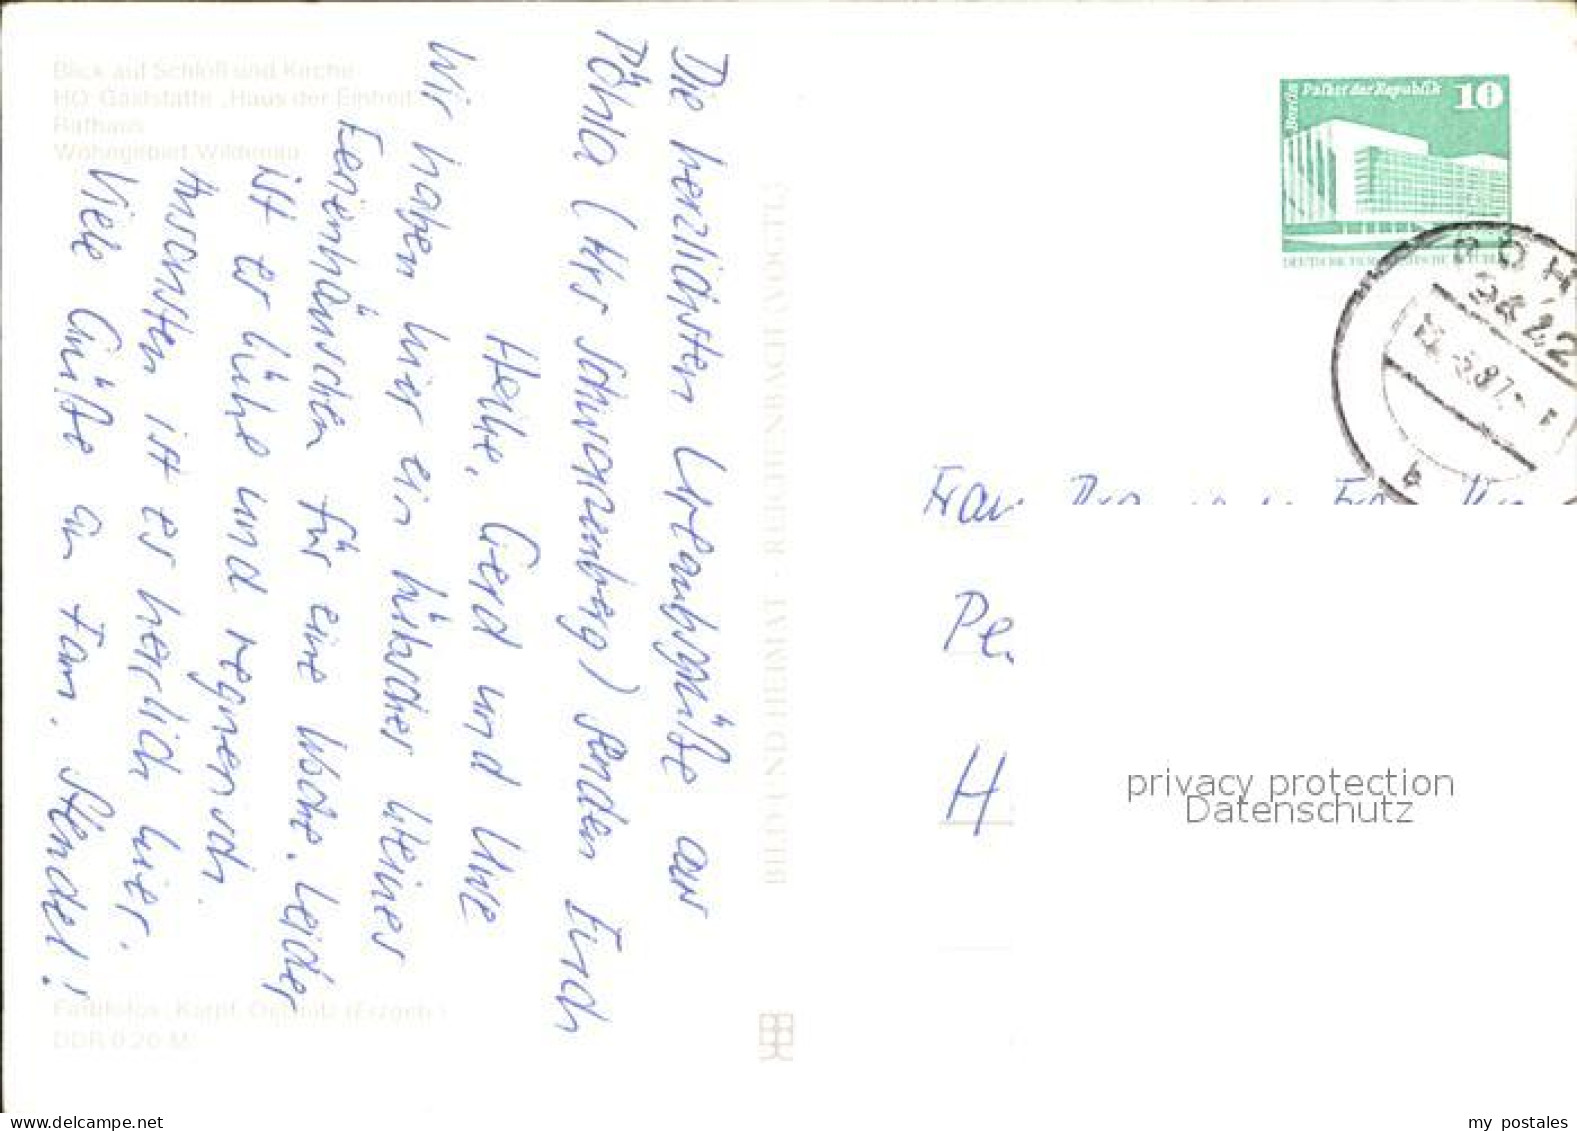 Blick auf Schloß und Kirche
HO-Gaststätte „Haus der Einheit"
Rathaus
Wohngebiet Wildenau
Die herzlichsten Urlaubsgrüße aus
Pöhla (Krs Schwarzenberg) senden Euch
Heike, Gerd und Uwe
Wir haben hier ein hübsches kleines
Ferienhäuschen für eine Woche. Leider
ist es kühl und regnerisch.
Ansonsten ist es herrlich hier.
Viele Grüße an Fam. Stendel!
Farbfotos: Karpf, Oppnitz (Erzgeb.)
DDR 0,20 M
BILD UND HEIMAT · REICHENBACH (VOGTL)
Berlin Palast der Republik 10
DEUTSCHE DEMOKRATISCHE REPUBLIK
PÖH
9422
87
b
Frau
Pe
H
privacy protection
Datenschutz
my postales